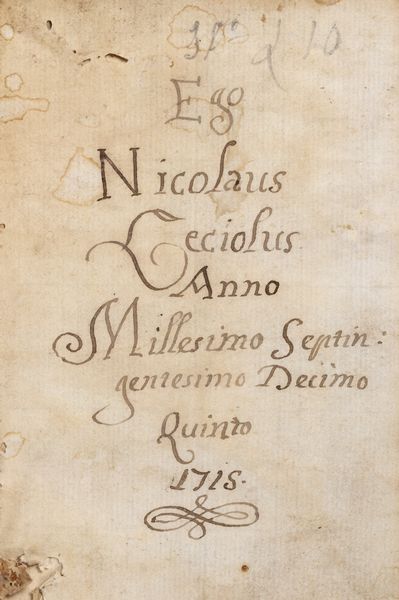 Ego
Nicolaus
Leciolus
Anno
Millesimo Septin:
gentesimo Decimo
Quinto
1715.